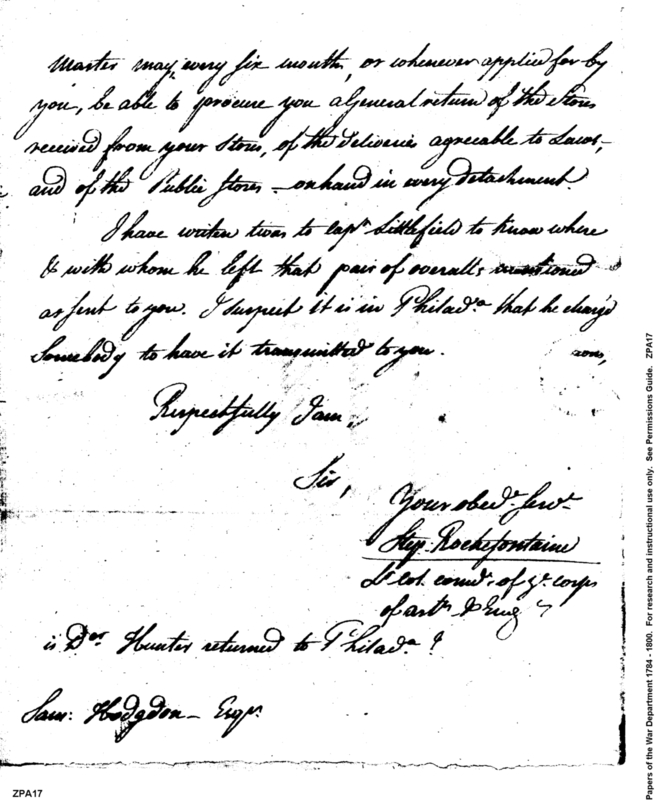 Master may, every six months, or whenever applied for by
you, be able to procure you a General return of the Stores
received from your Store, of the Deliveries agreable to Laws,
and of the Public Stores – on hand in every detachment.
I have writen twas to Capn Littlefield to know where
& with whom he left that pair of overalls mentioned
as sent to you. I suspect it is in Philada. that he charg'd
Somebody to have it transmitted to you.
Respectfully I am,
Sir,
Your obedt. Servt.
Step. Rochefontaine
Lt. Col. comdt. of ye. corps
of arts. & Eng
is Dor Hunter returned to Philada. ?
Sam: Hodgdon – Esqr.
ZPA17
Papers of the War Department 1784 - 1800. For research and instructional use only. See Permissions Guide. ZPA17